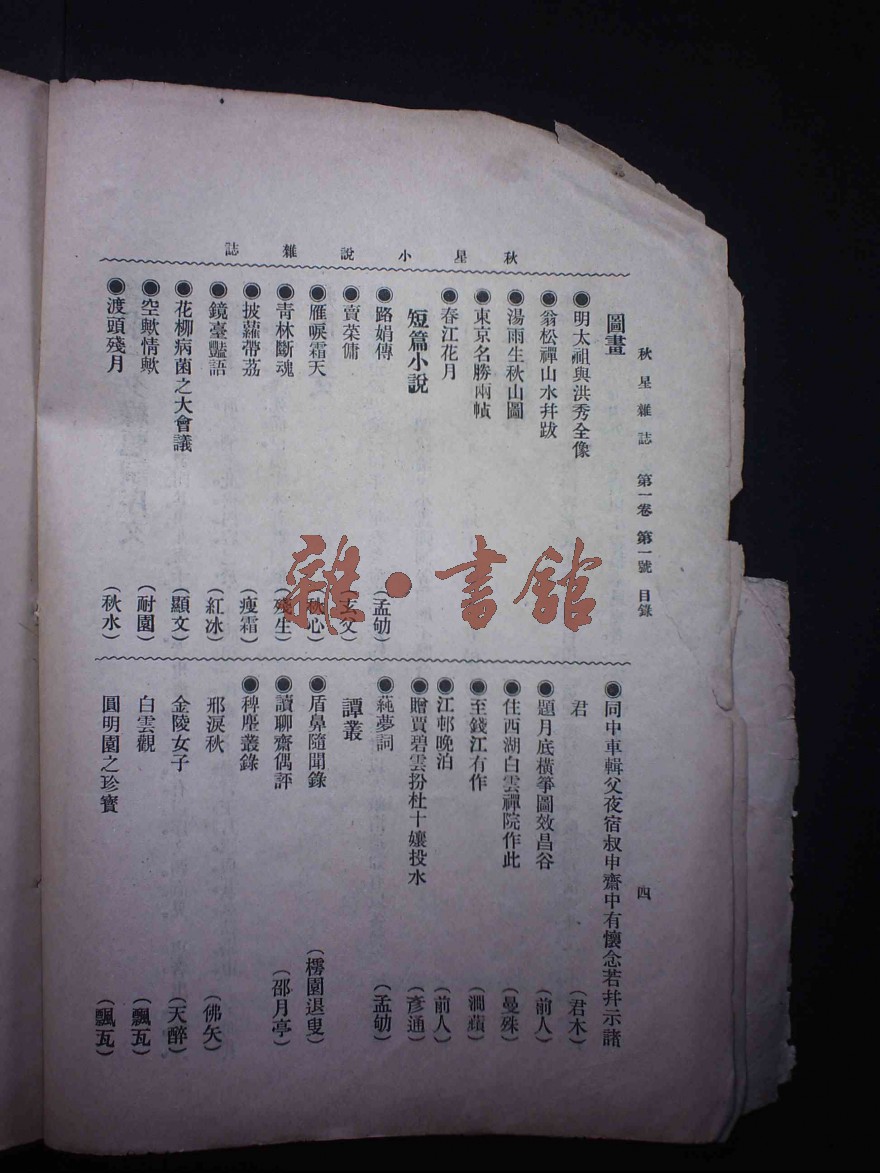 秋星雜誌 第一卷 第一號 目錄
四
秋星小說雜誌
圖畫
◉明太祖與洪秀全像
◉翁松禪山水幷跋
◉湯雨生秋山圖
◉東京名勝兩幀
◉春江花月
短篇小說
◉路娟傳 (孟劬)
◉賣菜傭 (玄父)
◉雁唳霜天 (秋心)
◉青林斷魂 (殘生)
◉披蘿帶荔 (瘦霜)
◉鏡臺豔語 (紅冰)
◉花柳病菌之大會議 (顯文)
◉空歟情歟 (耐園)
◉渡頭殘月 (秋水)
◉同中車輯父夜宿叔申齋中有懷念若幷示諸
君 (君木)
◉題月底橫箏圖效昌谷 (前人)
◉住西湖白雲禪院作此 (曼殊)
◉至錢江有作 (澗蘋)
◉江邨晚泊 (前人)
◉贈賈碧雲扮杜十孃投水 (彥通)
◉蒓夢詞 (孟劬)
譚叢
◉盾鼻隨聞錄 (樗園退叟)
◉讀聊齋偶評 (邵月亭)
◉稗塵叢錄
邢淚秋 (佛矢)
金陵女子 (天醉)
白雲觀 (飄瓦)
圓明園之珍寶 (飄瓦)
雜·書館